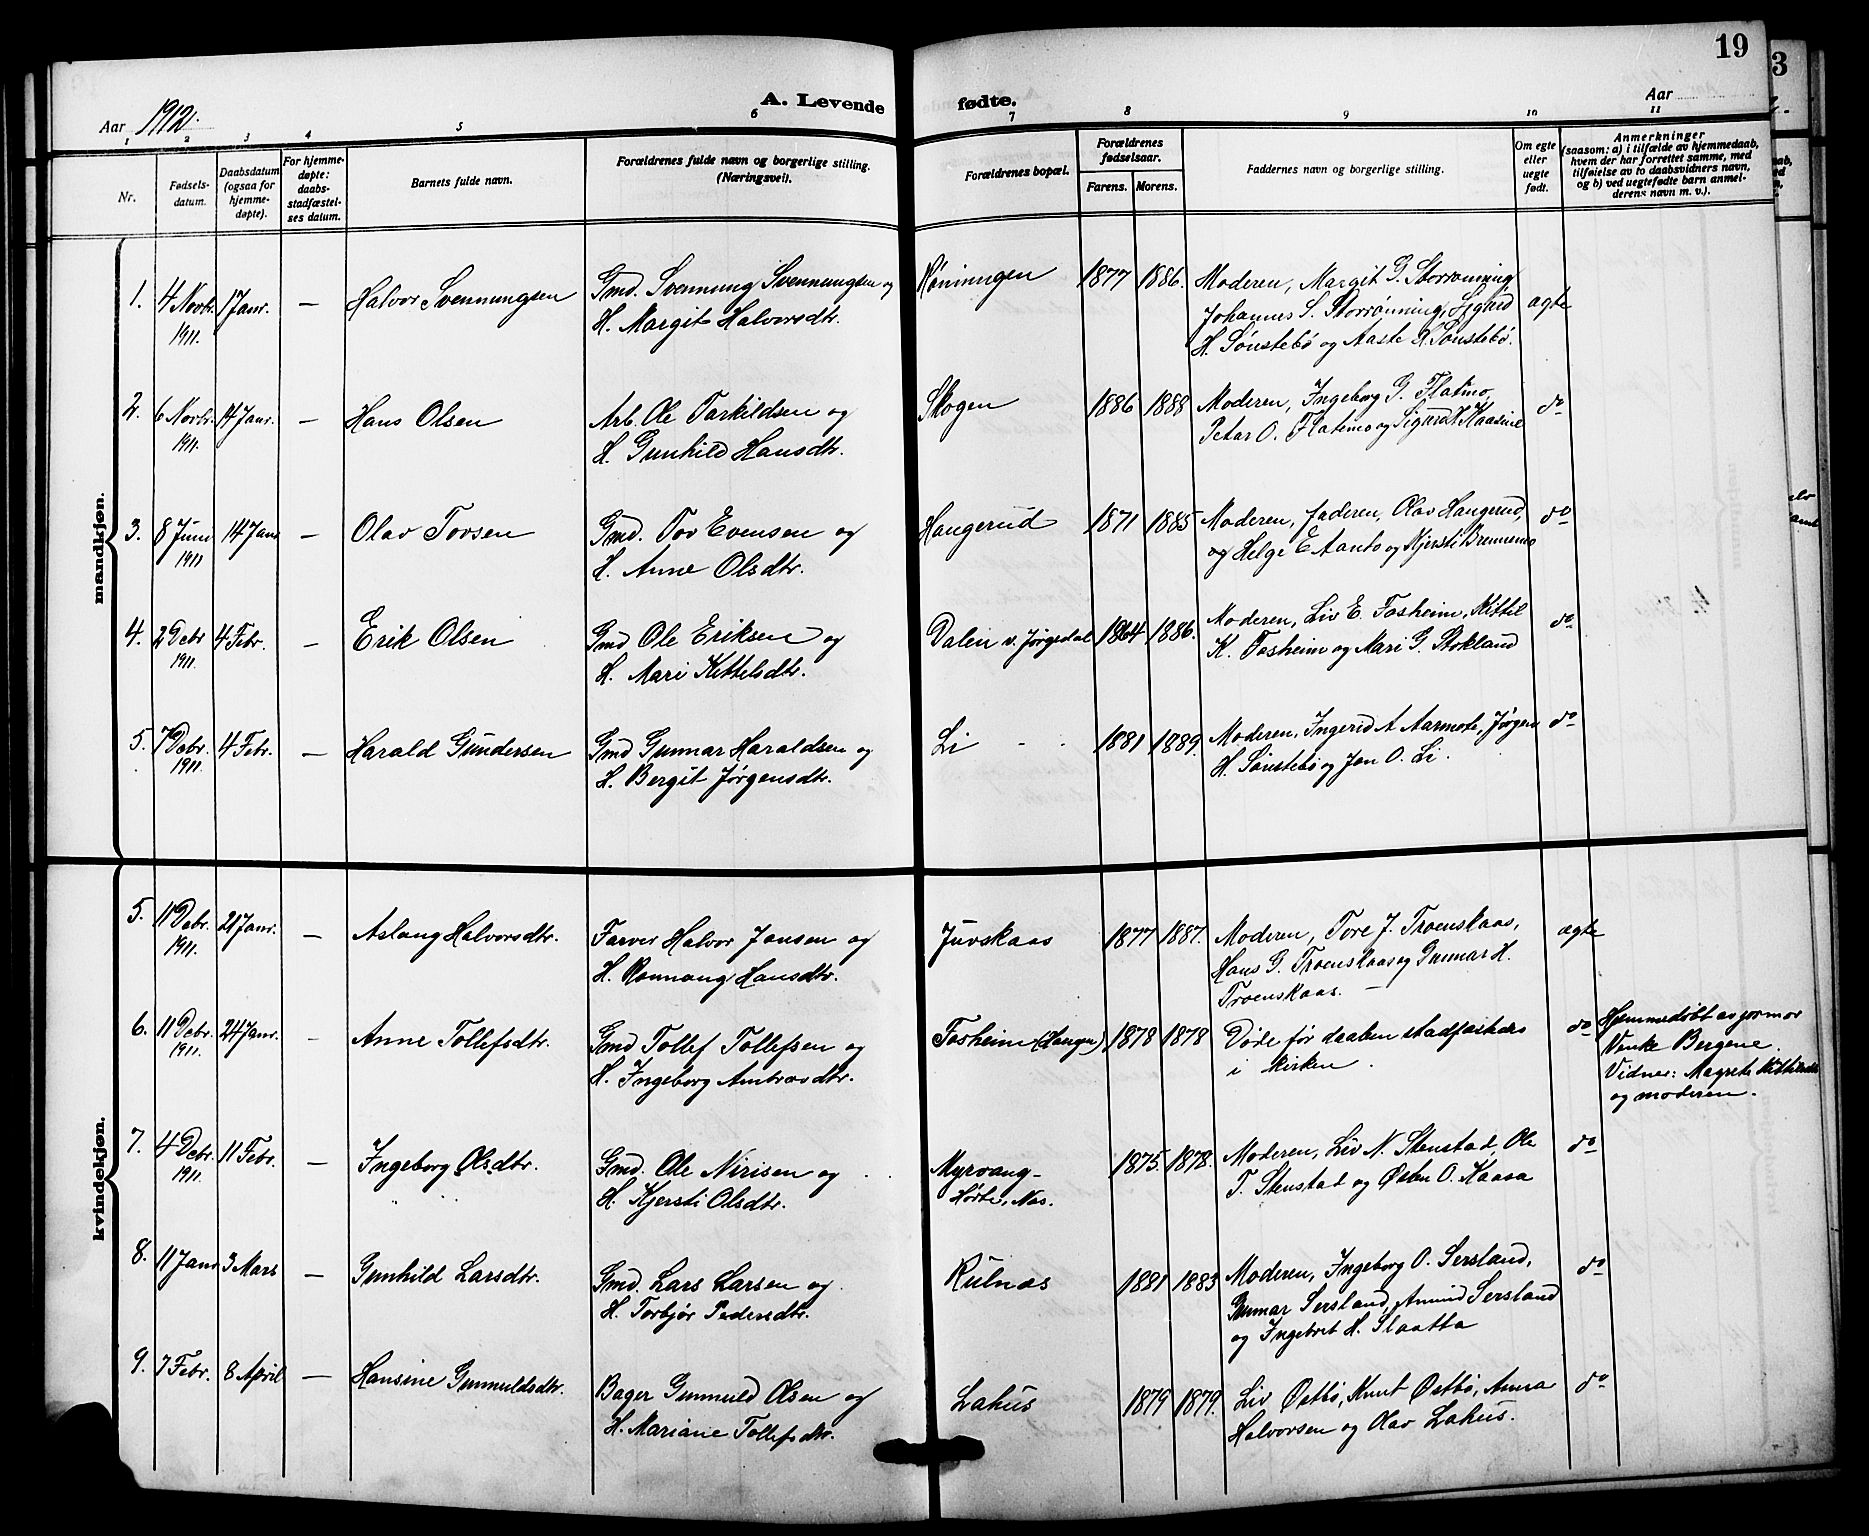 19
A. Levende fødte.
Aar 1912.
Aar
1 2 3 4 5 6 7 8 9 10 11
Nr.
Fødsels-
datum.
Daabsdatum
(ogsaa for
hjemme-
døpte).
For hjemme-
døpte:
daabs-
stadfæstel-
ses datum.
Barnets fulde navn.
Forældrenes fulde navn og borgerlige stilling.
(Næringsvei).
Forældrenes bopæl.
Forældrenes
fødselsaar.
Farens. Morens.
Faddernes navn og borgerlige stilling.
Om egte
eller
uegte
født.
Anmerkninger
(saasom: a) i tilfælde av hjemmedaab,
hvem der har forrettet samme, med
tilføielse av to daabsvidners navn,
og b) ved uegtefødte barn anmel-
derens navn m. v.).
mandkjøn.
1. 4 Novbr. 1911. 1 Janr. — Halvor Svennungsen
Gmd. Svennung Svennungsen og
H. Margit Halvorsdtr.
Røningen 1877 1886.
Moderen, Margit G. Storrønning
Johannes S. Storrønning, Sigurd
H. Sønstebö og Aaste K. Sønstebö.
ægte
2. 6 Novbr. 1911. 14 Janr. — Hans Olsen
Arb. Ole Tarkildsen og
H. Gunhild Hansdtr.
Skogen 1886 1888
Moderen, Ingeborg G. Flatmo,
Petar O. Flatmo og Sigurd H. Kaasine
do
3. 8 Juni 1911 14 Janr — Olav Tovsen
Gmd. Tov Evensen og
H. Anne Olsdtr.
Haugerud 1871 1885
Moderen, faderen, Olav Haugerud,
og Helge E Aanto og Kjersti Brennemo
do
4. 2 Debr 1911. 4 Febr. — Erik Olsen
Gmd Ole Eriksen og
H. Mari Kittelsdtr.
Dalen v. Jørgedal 1864 1886.
Moderen, Liv E. Fosheim, Kittel
K. Fosheim og Mari G. Stokland
do
5. 7 Debr. 1911. 4 Febr. — Harald Gundersen
Gmd Gunnar Haraldsen og
H. Bergit Jørgensdtr.
Li 1881 1889.
Moderen, Ingerid A Aarmote, Jørgen
H. Sønstebö og Jon O. Li.
do
kvindekjøn.
5. 11 Debr. 1911. 21 Janr. — Aslaug Halvorsdtr.
Farver Halvor Jansen og
H. Rannaug Hansdtr.
Juvskaas 1877 1887.
Moderen, Tore J. Troenskaas,
Hans G. Troenskaas og Gunnar H.
Troenskaas. —
ægte
6. 11 Debr. 1911. 24 Janr. - Anne Tollefsdtr.
Gmd Tollef Tollefsen og
H. Ingeborg Ambrosdtr.
Fosheim (Haugen) 1878 1878
Døde før daaben stadfæstedes
i kirken.
do
Hjemmedöbt av jormor
Venke Bergene.
Vidner: Magrete Kittilsdtr
og moderen.
7. 4 Debr. 1911. 11 Febr. — Ingeborg Olsdtr.
Gmd. Ole Nirisen og
H. Kjersti Olsdtr.
Myrvang-
Hörte, Nes.
1875. 1878.
Moderen, Liv N. Stenstad, Ole
T. Stenstad og Østen O. Kaasa
do
8. 11 Janr 3 Mars — Gunhild Larsdtr.
Gmd. Lars Larsen og
H. Torbjør Pedersdtr.
Kulnæs 1881 1883
Moderen, Ingeborg O. Sersland,
Gunnar Sersland, Amund Sersland
og Ingebret H. Slaatta
do
9. 7 Febr. 8 April — Hansine Gunnuldsdtr.
Bager Gunnuld Olsen og
H. Mariane Tollefsdtr.
Lahus 1879 1879.
Liv Østbö, Knut Østbö, Anna
Halvorsen og Olav Lahus.
do